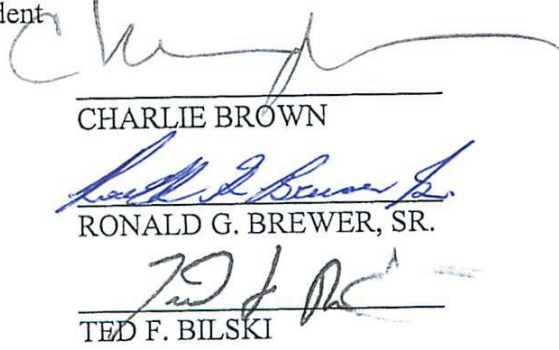 dent
CHARLIE BROWN
Ronald G. Brewer Sr.
RONALD G. BREWER, SR.
TED F. BILSKI